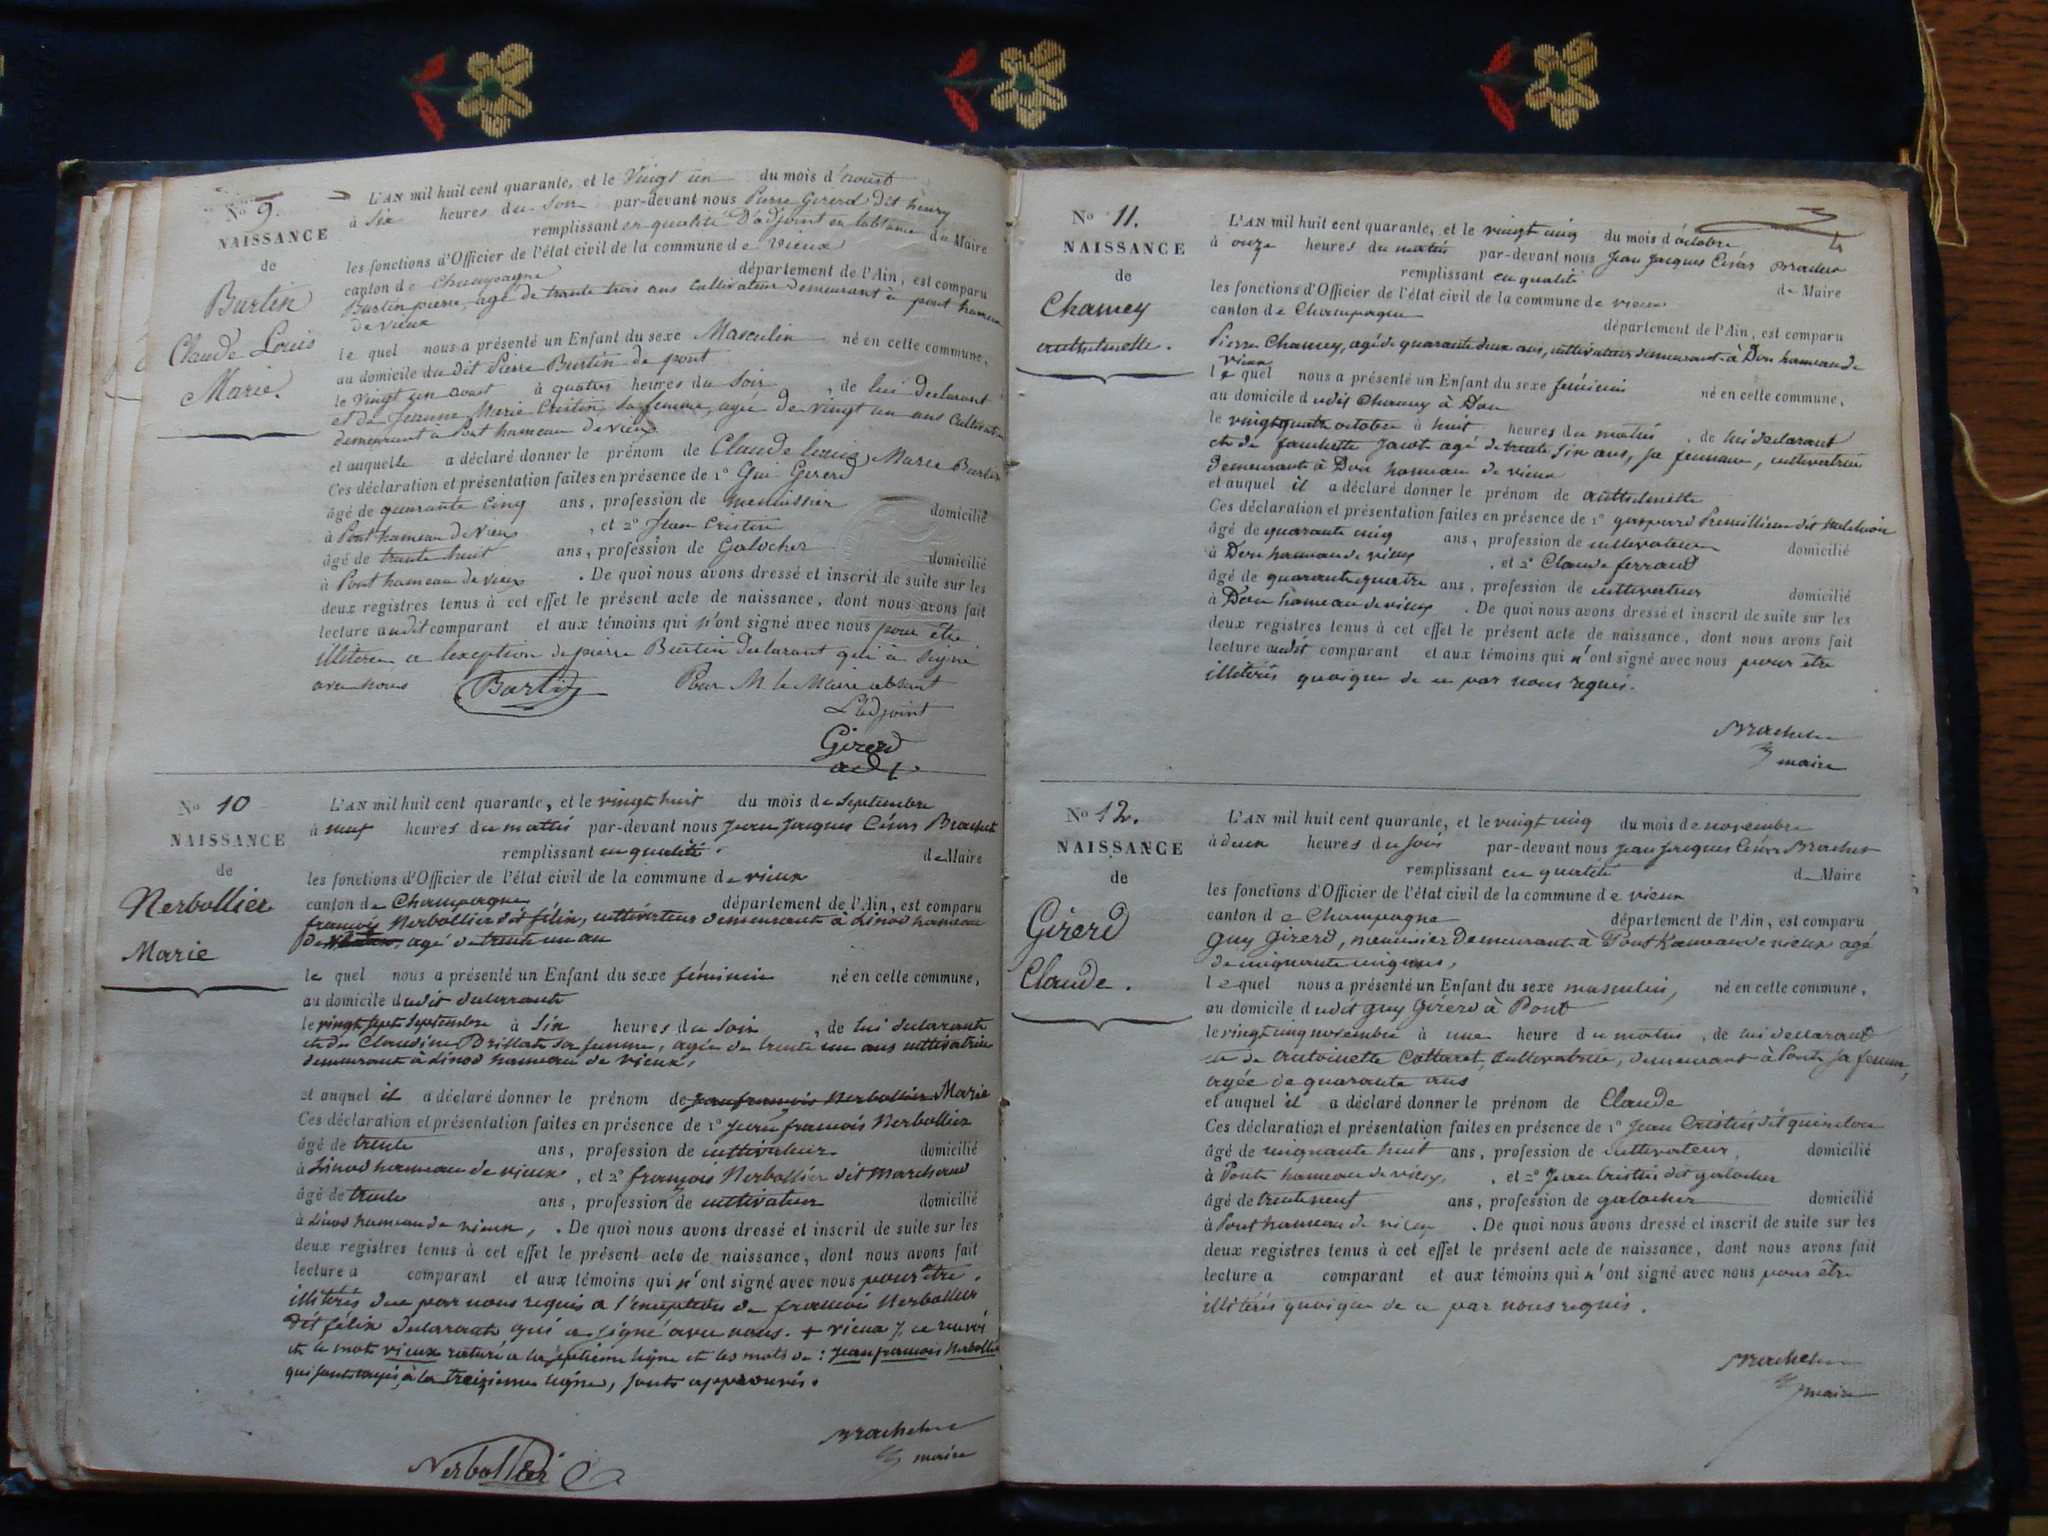 No 9.
NAISSANCE
de
Burtin
Claude Louis
Marie.
L'AN mil huit cent quarante, et le Vingt un du mois d'aoust
à Six heures du Soir par-devant nous Pierre Girerd dit henry
remplissant en qualité D'adjoint en l'absence du Maire
les fonctions d'Officier de l'état civil de la commune de Vieux
canton de Champagne département de l'Ain, est comparu
Burtin pierre, agé de trente trois ans Cultivateur Demeurant à pont hameau
de vieux
le quel nous a présenté un Enfant du sexe Masculin né en cette commune,
au domicile du dit Pierre Burtin de pont
le Vingt un aoust à quatre heures du Soir, de lui declarant
et de Jeanne Marie Cristin, sa femme, agée De vingt un ans Cultivatrice
demeurant à Pont hameau de vieux
et auquelle a déclaré donner le prénom de Claude Louis Marie Burtin
Ces déclaration et présentation faites en présence de 1º Gui Girerd
âgé de quarante Cinq ans, profession de menuissier domicilié
à Pont hameau de Vieux, et 2º Jean Cristin
âgé de trente huit ans, profession de Galocher domicilié
à Pont hameau de vieux. De quoi nous avons dressé et inscrit de suite sur les
deux registres tenus à cet effet le présent acte de naissance, dont nous avons fait
lecture audit comparant et aux témoins qui n'ont signé avec nous pour être
illiteré a lexeption de pierre Burtin declarant qui a signé
avec nous Burtin Pour M. le Maire absent
L'adjoint
Girerd
adt.
No 10
NAISSANCE
de
Nerbollier
Marie
L'AN mil huit cent quarante, et le vingt huit du mois de Septembre
à neuf heures du matin par-devant nous Jean Jacques César Brachet
remplissant en qualité de Maire
les fonctions d'Officier de l'état civil de la commune de vieux
canton de Champagne département de l'Ain, est comparu
françois Nerbollier dit félix, cultivateur demeurant à Linod hameau
de agé de trente un an
le quel nous a présenté un Enfant du sexe féminin né en cette commune,
au domicile dudit declarant
le vingt sept Septembre à Six heures du Soir, de lui declarant
et de Claudine Brillat sa femme, agée de trente un ans cultivatrice
demeurant à Linod hameau de vieux,
et auquel il a déclaré donner le prénom de Jean françois Nerbollier Marie
Ces déclaration et présentation faites en présence de 1º Jean françois Nerbollier
âgé de trente ans, profession de cultivateur domicilié
à Linod hameau de vieux, et 2º françois Nerbollier dit Marchand
âgé de trente ans, profession de cultivateur domicilié
à Linod hameau de vieux,. De quoi nous avons dressé et inscrit de suite sur les
deux registres tenus à cet effet le présent acte de naissance, dont nous avons fait
lecture a comparant et aux témoins qui n'ont signé avec nous pour être
illitérés due par nous requis a l'exeption de françois Nerbollier
dit félix declarant qui a signé avec nous. + vieux ce renvoi
et le mot vieux raturé a la septième ligne et les mots de: Jean françois Nerbollier
qui sont rayés, à la treizième ligne, sont approuvés.
Brachet
maire
Nerbollier
No 11.
NAISSANCE
de
Chamey
anthelmette.
L'AN mil huit cent quarante, et le vingt cinq du mois d'octobre
à onze heures du matin par-devant nous Jean Jacques César Brachet
remplissant en qualité de Maire
les fonctions d'Officier de l'état civil de la commune de vieux
canton de Champagne département de l'Ain, est comparu
Pierre Chamey, agé de quarante deux ans, cultivateur demeurant à Don hameau de
vieux
le quel nous a présenté un Enfant du sexe féminin né en cette commune,
au domicile dudit Chamey à Don
le vingt quatre octobre à huit heures du matin, de lui declarant
et de fanchette Jacot agé de trente six ans, sa femme, cultivatrice
demeurant à Don hameau de vieux
et auquel il a déclaré donner le prénom de anthelmette
Ces déclaration et présentation faites en présence de 1º gaspard Premillieu dit
âgé de quarante cinq ans, profession de cultivateur domicilié
à Don hameau de vieux, et 2º Claude ferrand
âgé de quarante quatre ans, profession de cultivateur domicilié
à Don hameau de vieux. De quoi nous avons dressé et inscrit de suite sur les
deux registres tenus à cet effet le présent acte de naissance, dont nous avons fait
lecture audit comparant et aux témoins qui n'ont signé avec nous pour être
illitérés quoique de ce par nous requis.
Brachet
maire
No 12.
NAISSANCE
de
Girerd
Claude.
L'AN mil huit cent quarante, et le vingt cinq du mois de novembre
à deux heures du soir par-devant nous Jean Jacques César Brachet
remplissant en qualité de Maire
les fonctions d'Officier de l'état civil de la commune de vieux
canton de Champagne département de l'Ain, est comparu
Guy Girerd, menuisier demeurant à Pont hameau de vieux agé
de cinquante cinq ans,
le quel nous a présenté un Enfant du sexe masculin, né en cette commune,
au domicile dudit Guy Girerd à Pont
le vingt cinq novembre à une heure du matin, de lui declarant
et de antoinette Cottaret, cultivatrice, demeurant à Pont sa femme,
agée de quarante ans
et auquel il a déclaré donner le prénom de Claude
Ces déclaration et présentation faites en présence de 1º Jean Cristin dit
âgé de cinquante huit ans, profession de cultivateur, domicilié
à Pont hameau de vieux, et 2º Jean Cristin dit galocher
âgé de trente neuf ans, profession de galocher domicilié
à Pont hameau de vieux. De quoi nous avons dressé et inscrit de suite sur les
deux registres tenus à cet effet le présent acte de naissance, dont nous avons fait
lecture a comparant et aux témoins qui n'ont signé avec nous pour être
illitérés quoique de ce par nous requis.
Brachet
maire